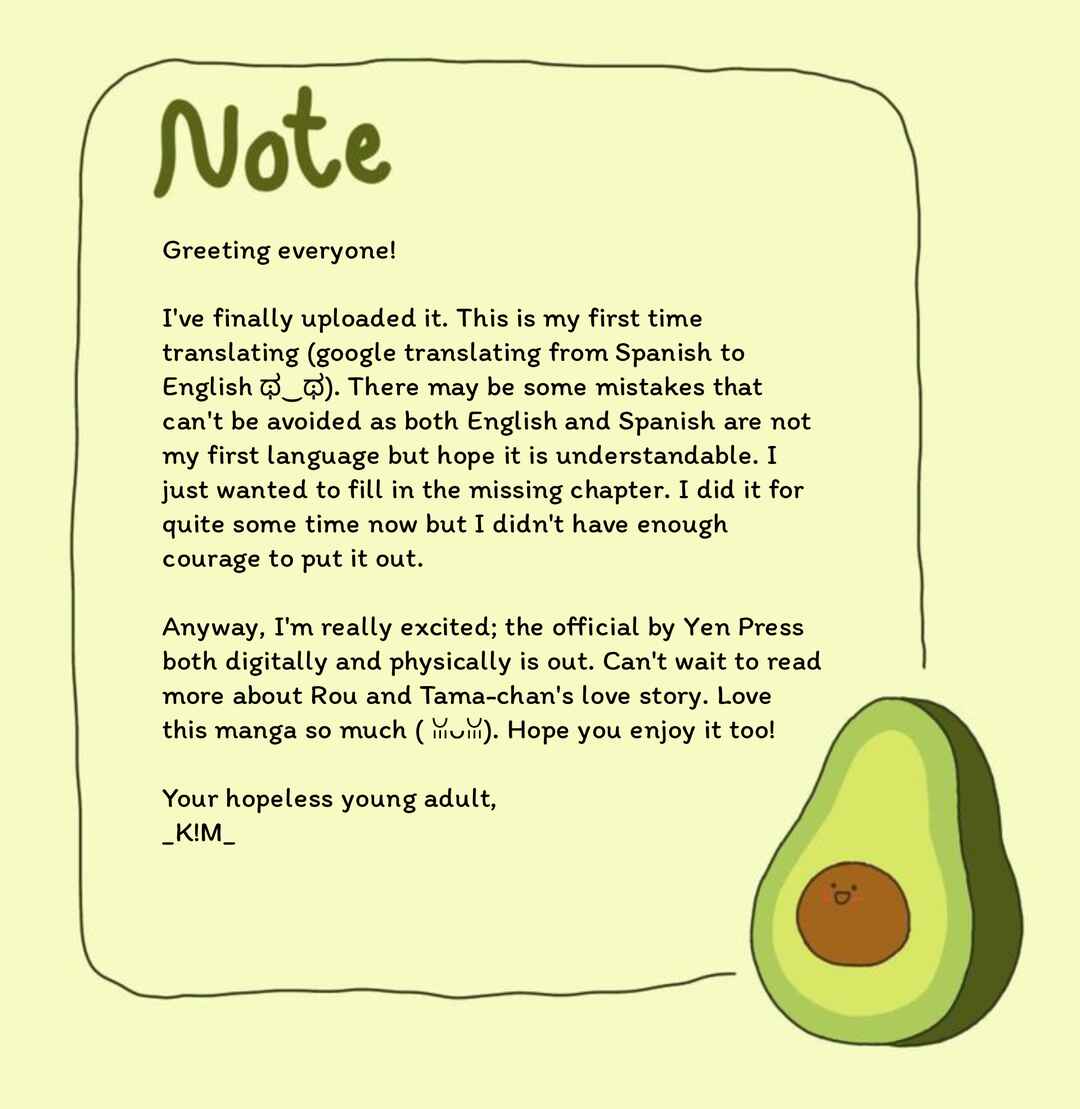 Note
Greeting everyone!
I've finally uploaded it. This is my first time
translating (google translating from Spanish to
English ಥ‿ಥ). There may be some mistakes that
can't be avoided as both English and Spanish are not
my first language but hope it is understandable. I
just wanted to fill in the missing chapter. I did it for
quite some time now but I didn't have enough
courage to put it out.
Anyway, I'm really excited; the official by Yen Press
both digitally and physically is out. Can't wait to read
more about Rou and Tama-chan's love story. Love
this manga so much ( ꈍᴗꈍ). Hope you enjoy it too!
Your hopeless young adult,
_K!M_